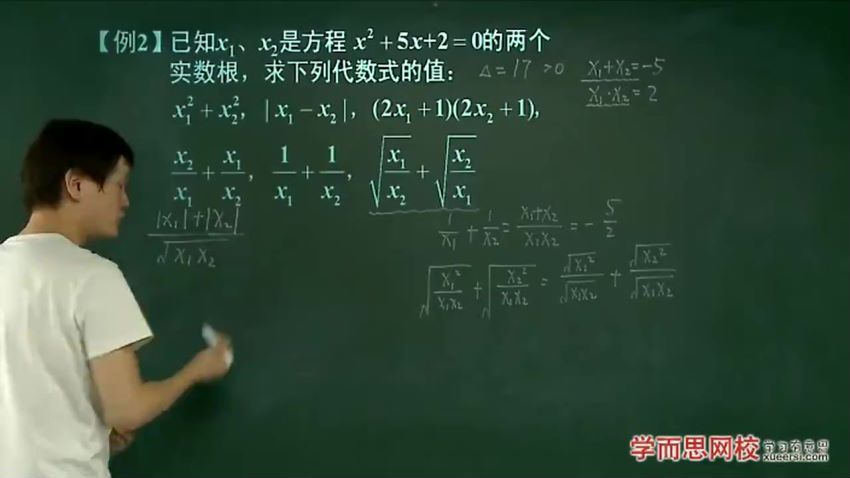 【例2】已知x₁、x₂是方程 x²+5x+2=0的两个
实数根，求下列代数式的值：
△=17>0
x₁+x₂=-5
x₁·x₂=2
x₁²+x₂²，|x₁-x₂|，(2x₁+1)(2x₂+1)，
x₂/x₁+x₁/x₂，1/x₁+1/x₂，√(x₁/x₂)+√(x₂/x₁)
(|x₁|+|x₂|)/√(x₁x₂)
1/x₁+1/x₂=(x₁+x₂)/(x₁x₂)=-5/2
√(x₁²/(x₁x₂))+√(x₂²/(x₁x₂))=√(x₁²)/√(x₁x₂)+√(x₂²)/√(x₁x₂)
学而思网校 学习有意思
xueersi.com